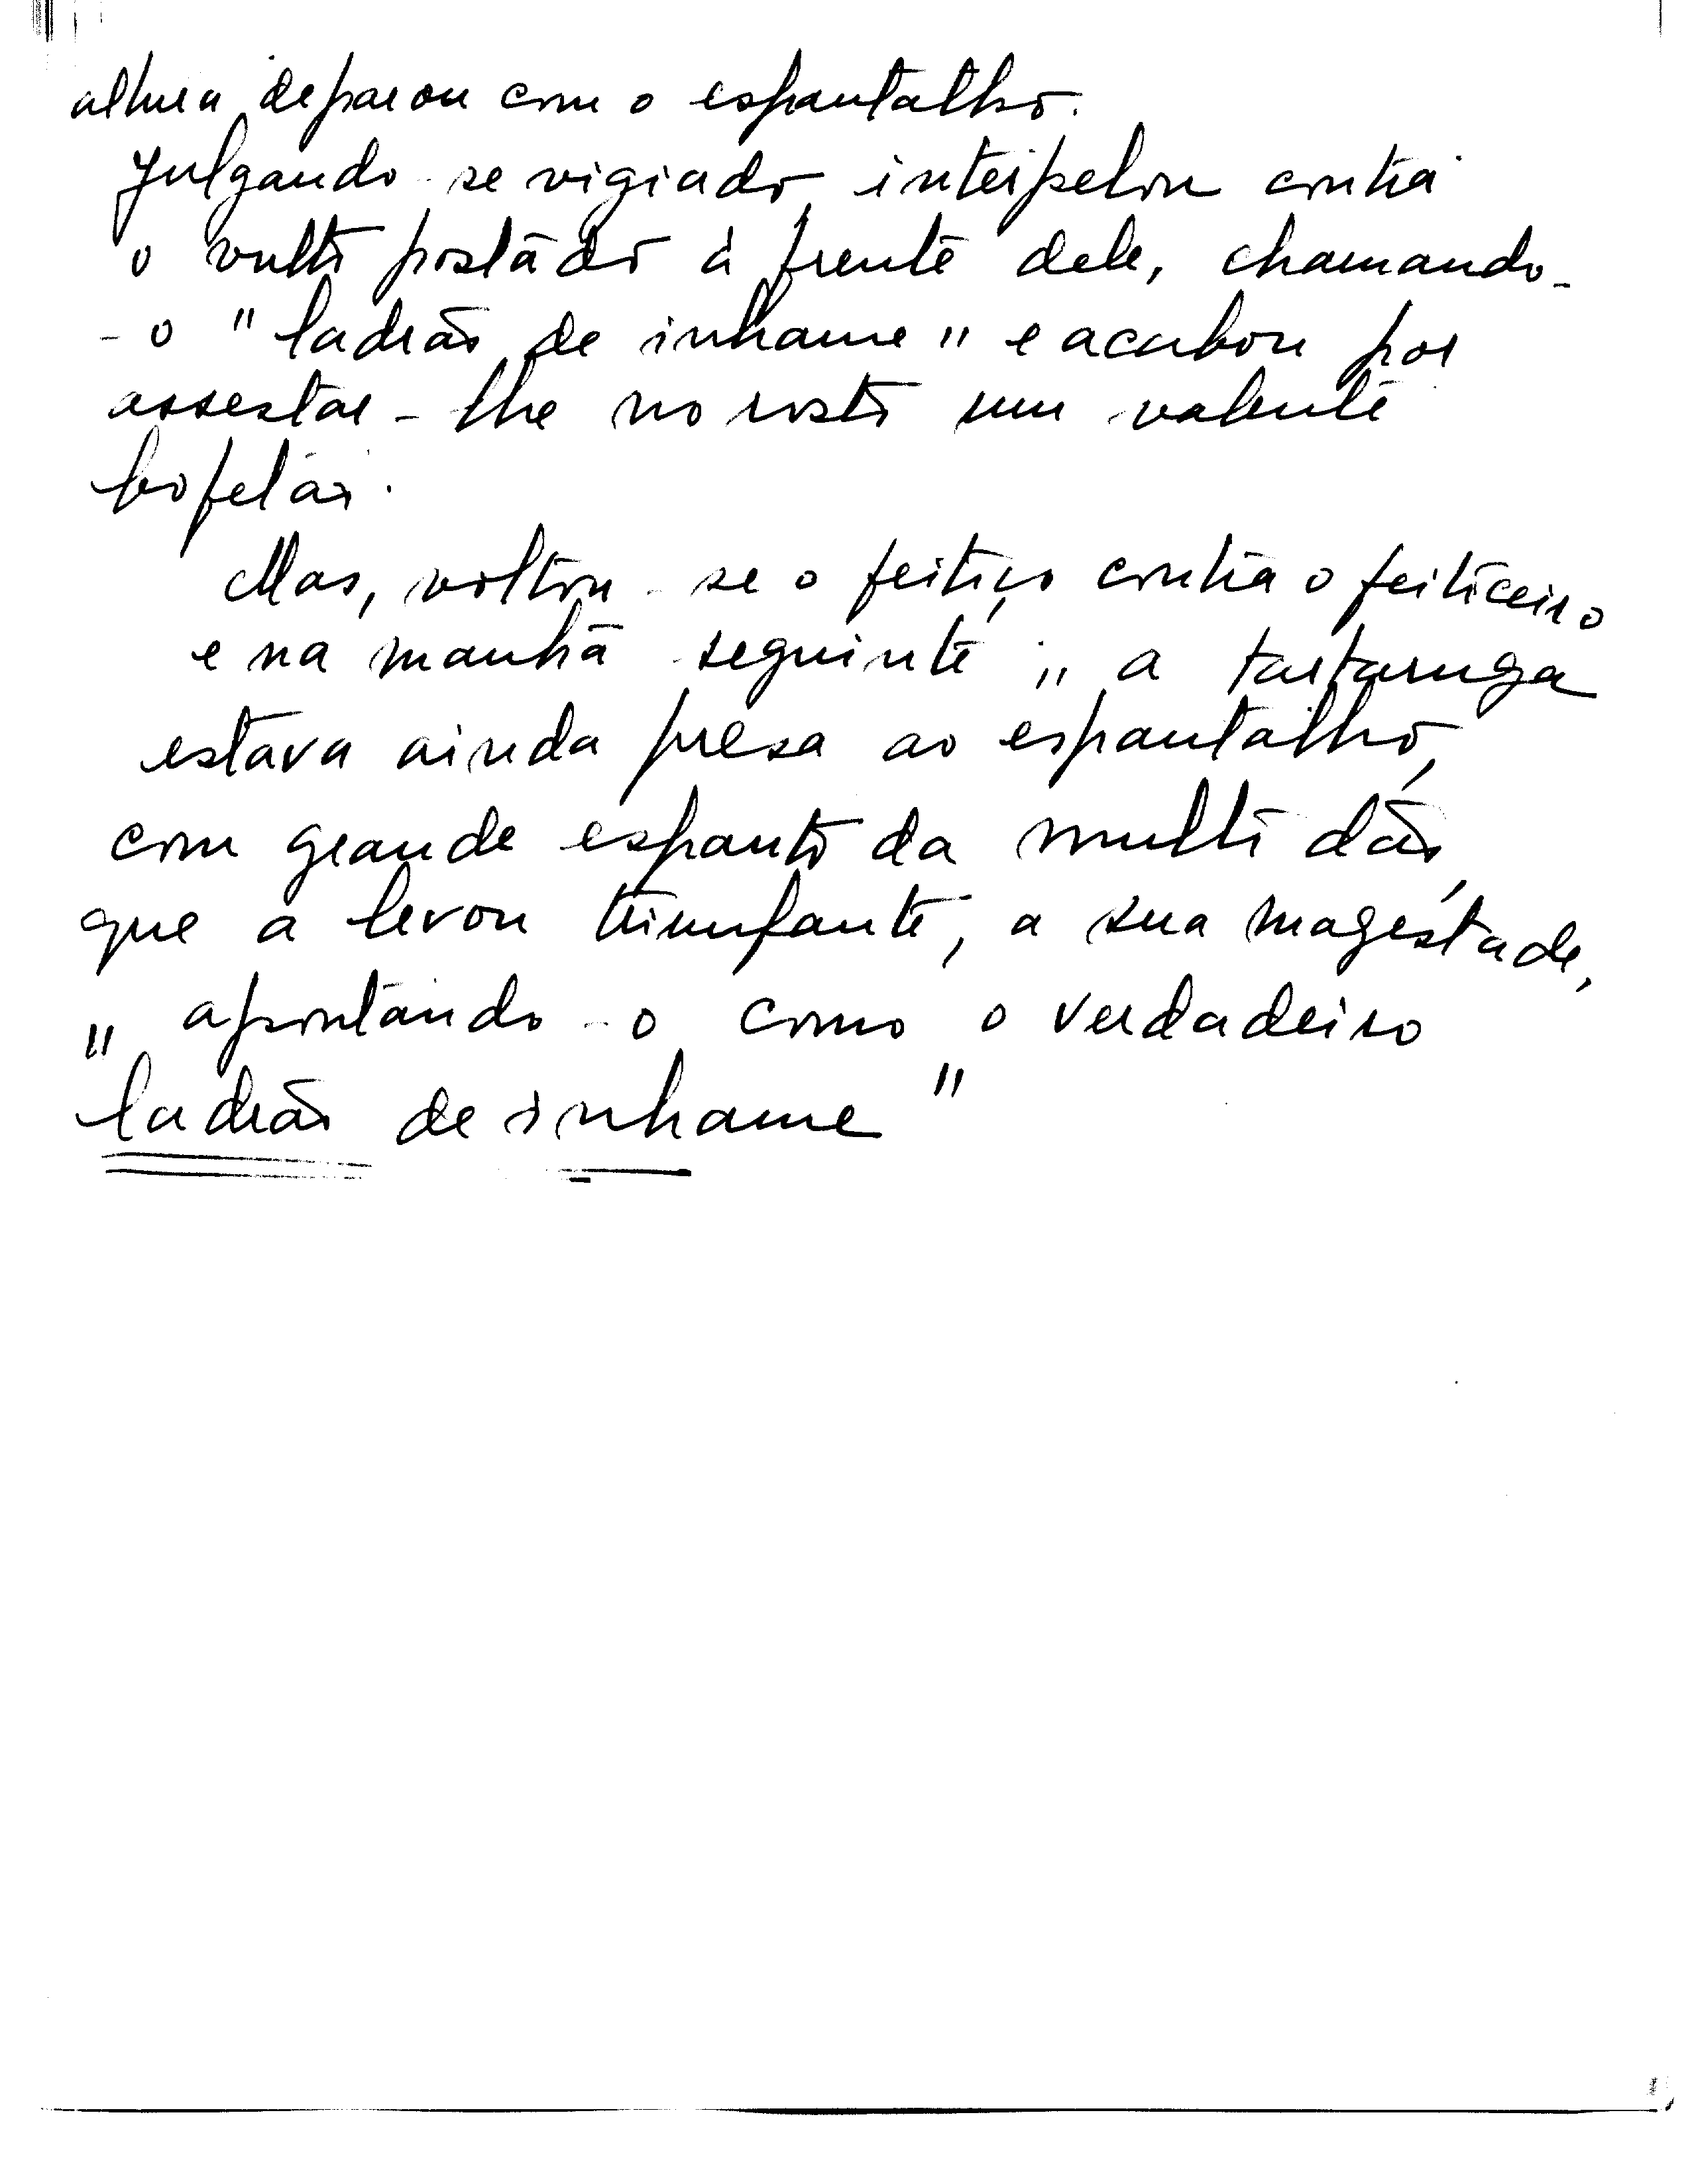 altura deparou com o espantalho.
Julgando-se vigiado, interpelou contra
o vulto postado à frente dele, chamando-
-o "ladrão de inhame" e acabou por
assestar-lhe no rosto um valente
bofetão.
Mas, voltou-se o feitiço contra o feiticeiro
e na manhã seguinte "a tartaruga
estava ainda presa ao espantalho,
com grande espanto da multidão,
que a levou triunfante, a sua magestade,
"apontando-o como o verdadeiro
ladrão de inhame"